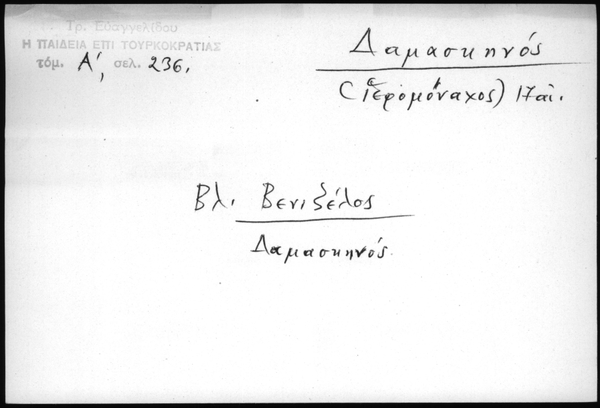 Τρ. Εὐαγγελίδου
Η ΠΑΙΔΕΙΑ ΕΠΙ ΤΟΥΡΚΟΚΡΑΤΙΑΣ
τόμ. Α', σελ. 236.
Δαμασκηνός
(ἱερομόναχος) 17 αἰ.
Βλ. Βενιζέλος
Δαμασκηνός.